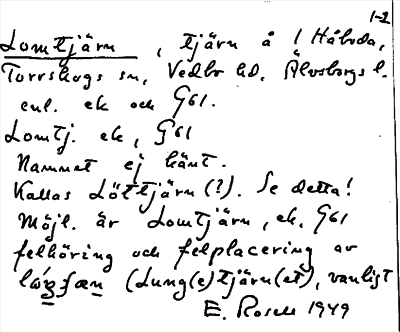 1-2
Lomtjärn, tjärn å 1 Håbode,
Torrskogs sn, Vedbo hd, Älvsborgs l.
enl. ek och G61.
Lomtj. ek, G61
Namnet ej känt.
Kallas Löttjärn (?). Se detta!
Möjl. är Lomtjärn, ek, G61
felhöring och felplacering av
(Lung(e)tjärn(et), vanligt
E. Rosell 1949